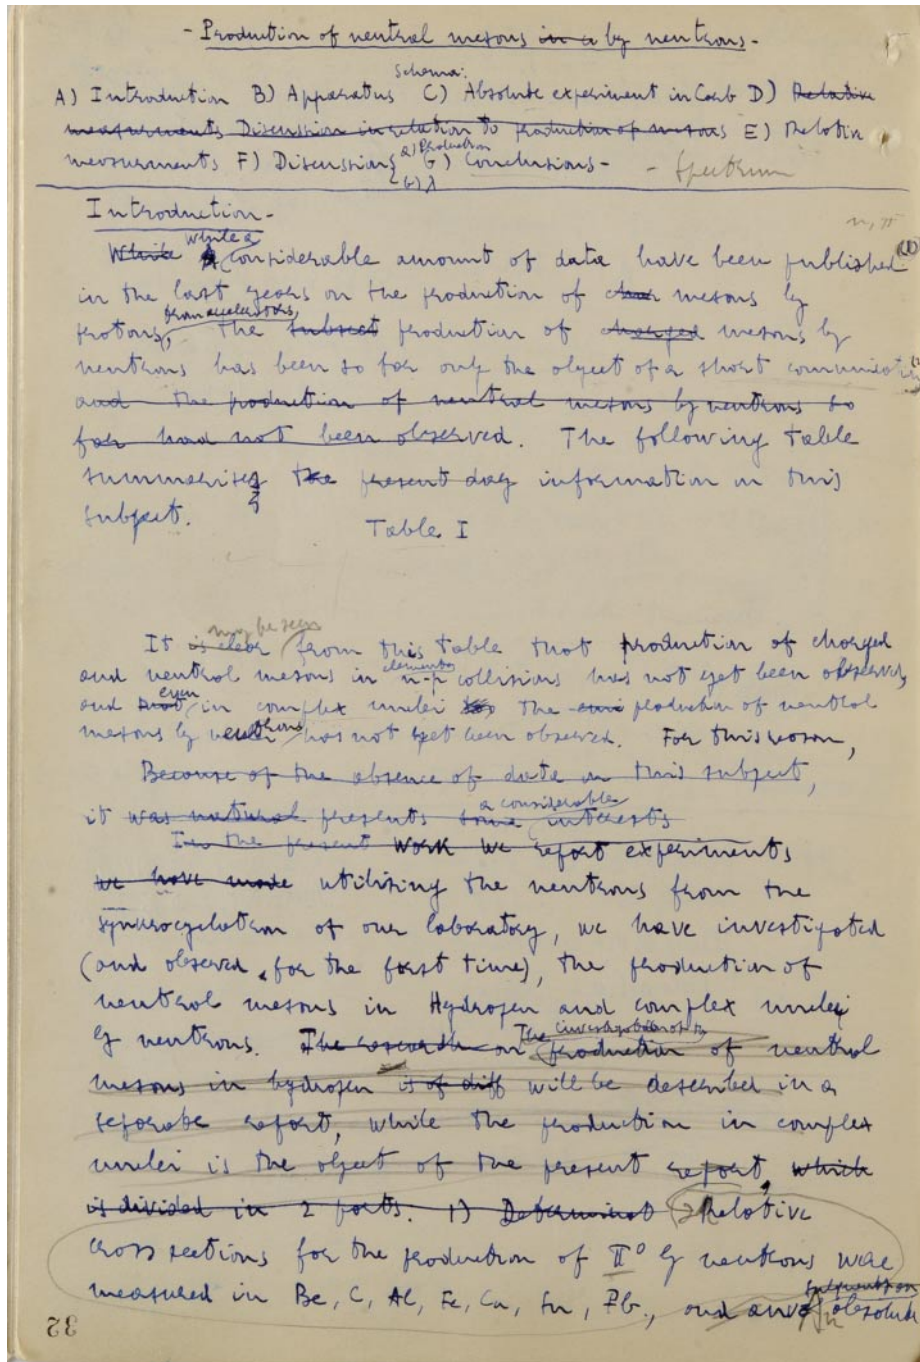 - Production of neutral mesons in a by neutrons -
Schema:
A) Introduction B) Apparatus C) Absolute experiment in Carb D) Relative
measurments Discussion in relation to production of mesons E) Relativ
measurments F) Discussions a) Production b) λ G) Conclusions - - Spectrum
Introduction -
n, π
While While a considerable amount of data have been published (1)
in the last years on the production of char mesons by
protons, from accelerators, the subject production of charged mesons by
neutrons has been so far only the object of a short communicati
and the production of neutral mesons by neutrons so
far had not been observed. The following table
summarises the present day information on this
subject.
Table I
It is clear may be seen from this table that production of charged
and neutral mesons in elementary n-p collisions has not yet been observed,
and not even in complex nuclei the production of neutral
mesons by neutrons has not yet been observed. For this reason,
Because of the absence of data on this subject,
it was natural presents some a considerable interests
In the present work we report experiments
we have made utilising the neutrons from the
synchrocyclotron of our laboratory, we have investigated
(and observed, for the first time), the production of
neutral mesons in Hydrogen and complex nuclei
by neutrons. The research on The investigation of the production of neutral
mesons in hydrogen is of diff will be described in a
separate report, while the production in complex
nuclei is the object of the present report, which
is divided in 2 parts: 1) Determinat Relative
cross sections for the production of π° by neutrons were
measured in Be, C, Al, Fe, Cu, Sn, Pb., and an absolute
32